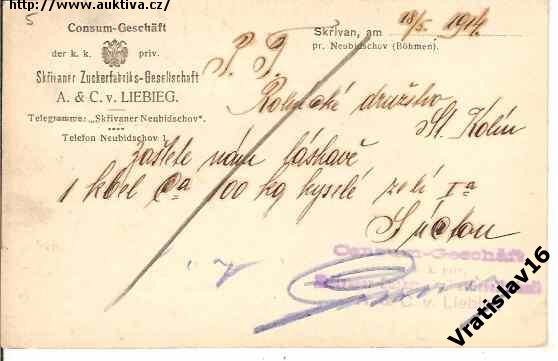 www.auktiva.cz/
5
Consum-Geschäft
der k. k. priv.
Skřivaner Zuckerfabriks-Gesellschaft
A. & C. v. LIEBIEG.
Telegramme: „Skřivaner Neubidschov".
Telefon Neubidschov 1.
Skřivan, am 18/5. 1914.
pr. Neubidschov (Böhmen).
P. T.
Rolnické družstvo
St. Kolín
zašlete nám láskavě
1 kbel Ca 100 kg kyselé zelí Ia
S úctou
Consum-Geschäft
k. k. priv.
A. & C. v. Liebieg
Vratislav16